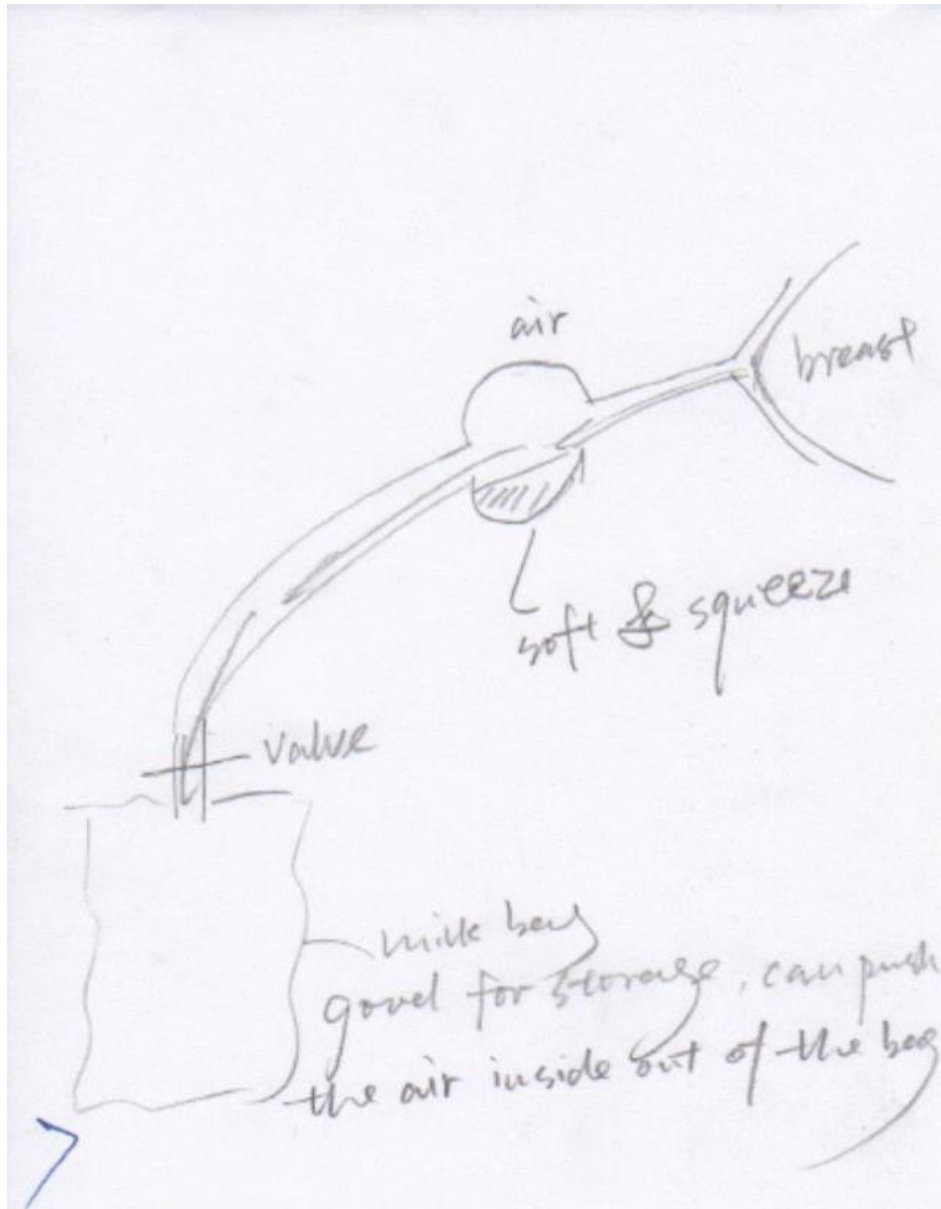 air
breast
soft & squeeze
valve
milk bag
good for storage, can push
the air inside out of the bag